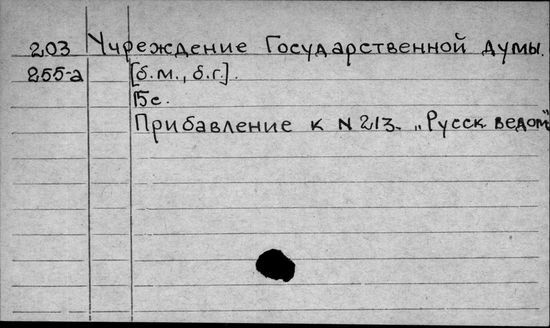 203 Учреждение Государственной Думы.
255-а [б.м., б.г.].
15с.
Прибавление к N 213. „Русск ведом"